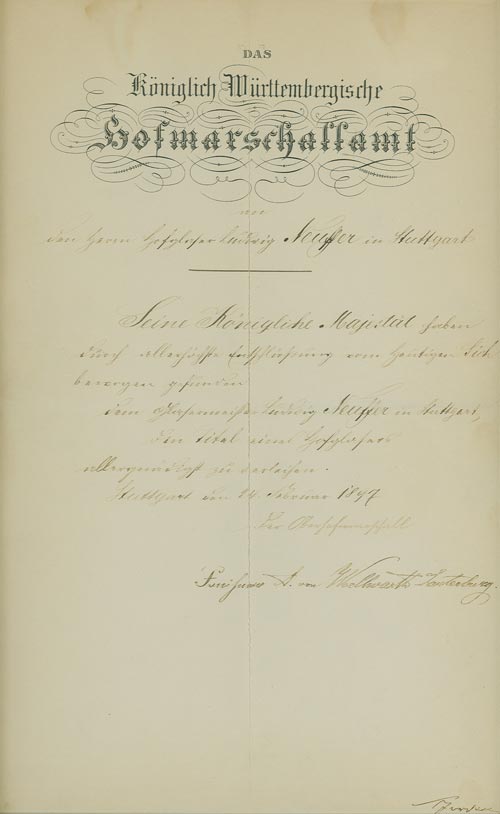 DAS
Königlich Württembergische
Hofmarschallamt
an
den Herrn Hofglaser Ludwig Neuffer in Stuttgart
Seine Königliche Majestät haben
durch allerhöchste Entschließung vom heutigen Sich
bewogen gefunden
dem Glasermeister Ludwig Neuffer in Stuttgart,
den Titel eines Hofglasers
allergnädigst zu verleihen.
Stuttgart den 24. Februar 1897
Der Oberhofmarschall
Freiherr A. von Wöllwarth-Lauterburg.